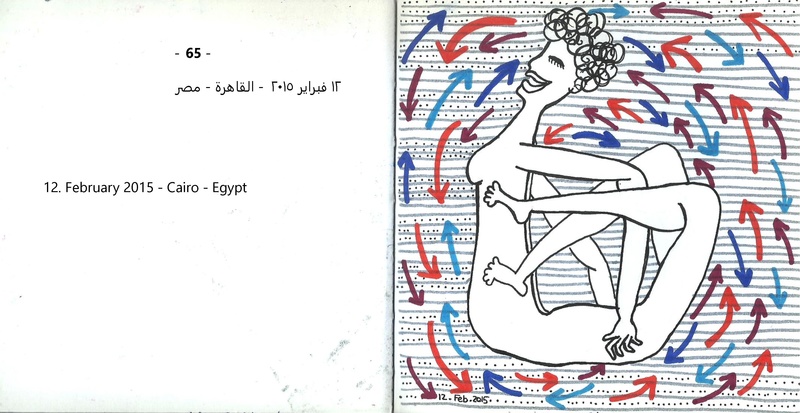 - 65 -
١٢ فبراير ٢٠١٥ - القاهرة - مصر
12. February 2015 - Cairo - Egypt
12. Feb. 2015